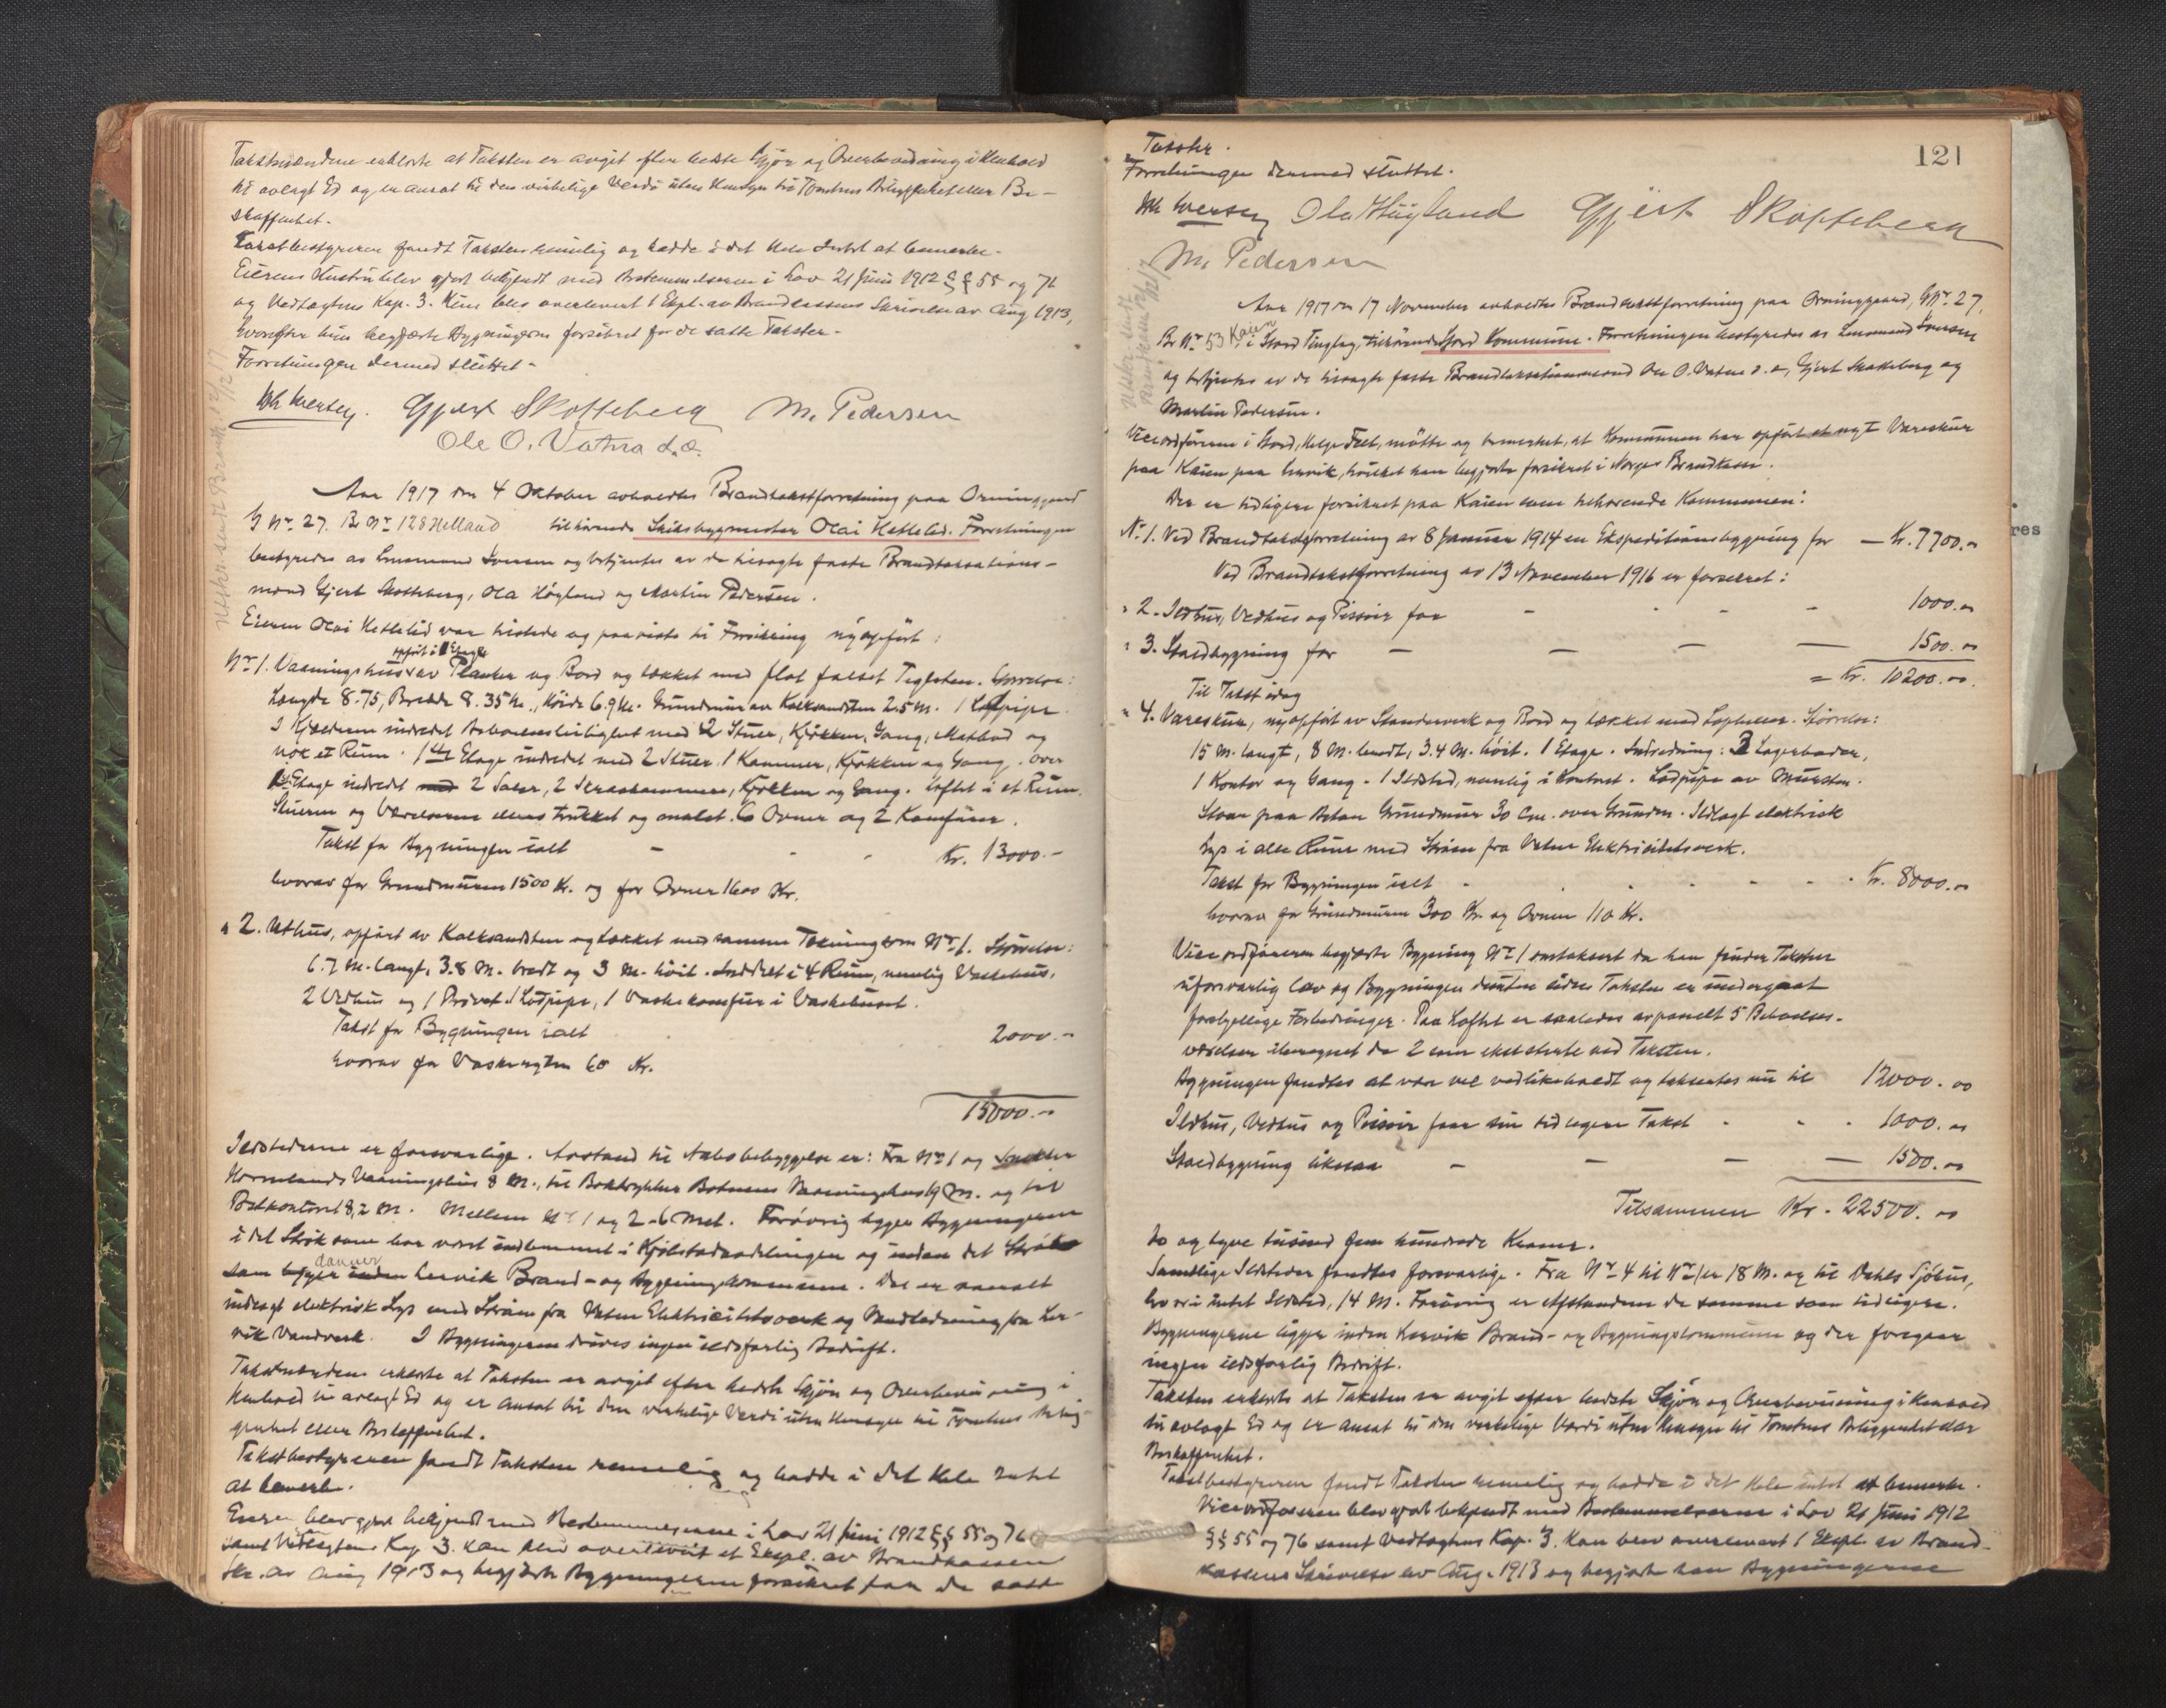 Takstmændene erklærte at Taksten er avgit efter bedste Skjøn og Overbevisning i Henhold
til avlagt Ed og er ansat til den virkelige Verdi uten Hensyn til Tomtens Beliggenhet eller Be-
skaffenhet.
Takstbestyreren fandt Taksten rimelig og hadde i det Hele Intet at bemerke.
Eierens Hustru blev gjort bekjendt med Bestemmelserne i Lov 21 Juni 1912 §§ 55 og 76
og Vedtægtens Kap. 3. Hun blev overlevert 1 Expl. av Brandkassens Skrivelse av Aug 1913,
hvorefter hun begjærte Bygningerne forsikret for de satte Takster.
Forretningen dermed sluttet.
Joh Iversen. Gjert Skotteberg M. Pedersen
Ole O. Vatna d.æ.
Utskr. sendt Brandk. 12/12 17
Aar 1917 den 4 Oktober avholdtes Brandtakstforretning paa Orninggaard
G Nr. 27. Br Nr 128 Helland tilhørende Skibsbygmester Olai Hettelid. Forretningen
bestyredes av Lensmand Iversen og betjentes av de til­sagte faste Brandtaxations-
mænd Gjert Skotteberg, Ola Høgland og Martin Pedersen.
Eieren Olai Hettelid var tilstede og paaviste til Forsikring nyopført:
opført i 1 Etage
Nr 1. Vaaningshus av Planker og Bord og tækket med flat falset Teglsten. Størrelse:
Længde 8.75, Bredde 8.35 M., Høide 6.9 M. Grundmur av Kalksandsten 2.5 m. 1 Lodpipe
I Kjælderen indredet Beboelsesleilighet med 2 Stuer, Kjøkken, Gang, Matbod og
nok et Rum. 1ste Etage indredet med 2 Stuer, 1 Kammer, Kjøkken og Gang. over
Etage indredet med 2 Saler, 2 Skraakammere, Kjøkken og Gang. Loftet i et Rum.
Stuerne og Værelserne ellers trukket og malet. 6 Ovner og 2 Komfurer.
Takst for Bygningen ialt - - - Kr. 13000.-
hvorav for Grundmuren 1500 Kr. og for Ovner 1600 Kr.
" 2. Uthus, opført av Kalksandsten og tækket med samme Tækning som Nr 1. Størrelse:
6.7 M. langt, 3.8 M. bredt og 3 M. høit. Inddelt i 4 Rum, nemlig Vaskehus,
2 Vedhus og 1 Privet. 1 Lodpipe, 1 Vaskekomfur i Vaskehuset.
Takst for Bygningen ialt 2000.-
hvorav for Vaskegryten 60 Kr.
15000.-
Ildstederne er forsvarlige. Avstand til Nabobebyggelse er: Fra Nr 1 og Snekker
Hornelands Vaaningshus 8 M., til Boktrykker Botnens Vaaningshus 19 m. og til
Postkontoret 8,2 M. Mellem Nr 1 og 2 - 6 Met. Forøvrig ligger Bygningerne
i det Strøk som har været indlemmet i Kjøbstadavdelingen og inden det Strøk
danner
som ligger inden Lervik Brand- og Bygningskommune. Der er overalt
indlagt elektrisk Lys med Strøm fra Vatna Elektricitetsverk og Vandledning fra Ler-
vik Vandverk. I Bygningerne drives ingen ildsfarlig Bedrift.
Takstmændene erklærte at Taksten er avgit efter bedste Skjøn og Overbevisning i
Henhold til avlagt Ed og er ansat til den virkelige Verdi uten Hensyn til Tomtens Belig-
genhet eller Beskaffenhet.
Takstbestyreren fandt Taksten rimelig og hadde i det Hele Intet
at bemerke.
Eieren blev gjort bekjendt med Bestemmelserne i Lov 21 Juni 1912 §§ 55 og 76
samt Vedtægtens Kap 3. Han blev overlevert et Expl. av Brandkassens
Skr. av Aug 1913 og begjærte Bygningerne forsikret for de satte
121
Takster.
Forretningen dermed sluttet.
Joh Iversen Ola Høgland Gjert Skotteberg
M. Pedersen
Utskr. sendt
Aar 1917 den 17 November avholdtes Brandtakstforretning paa Orninggaard, G Nr. 27,
Br Nr 53 Kaien i Stord Tinglag, tilhørende Stord Kommune. Forretningen bestyredes av Lensmand Iversen
og betjentes av de tilsagte faste Brandtaksationsmænd Ole O. Vatna d. æ., Gjert Skotteberg og
Martin Pedersen.
Viceordføreren i Stord, Helge Tvet, møtte og bemerket, at Kommunen har opført et nyt Vareskur
paa Kaien paa Lervik, hvilket han begjærte forsikret i Norges Brandkasse.
Der er tidligere forsikret paa Kaien som tilhørende Kommunen:
Nr. 1. Ved Brandtakstforretning av 8 Januar 1914 en Ekspeditionsbygning for — Kr. 7700.00
Ved Brandtakstforretning av 13 November 1916 er forsikret:
" 2. Ildhus, Vedhus og Pissoir for - - - - 1000.00
" 3. Staldbygning for — — — — 1500.00
= Kr. 10200.00.
Til Takst idag
" 4. Vareskur, nyopført av Stenderverk og Bord og tækket med Tagheller. Størrelse:
15 M. langt, 8 M. bredt, 3.4 M. høit. 1 Etage. Indredning: 3 Lagerboder,
1 Kontor og Gang. 1 Ildsted, nemlig i Kontoret. Lodpipe av Mursten.
Staar paa Beton Grundmur 30 Cm. over Grunden. Indlagt elektrisk
Lys i alle Rum med Strøm fra Vatna Elektricitetsverk.
Takst for Bygningen ialt - - - - Kr. 8000.00
hvorav for Grundmuren 300 Kr. og Ovnen 110 Kr.
Viceordføreren begjærte Bygning Nr 1 omtaksert da han finder Taksten
uforsvarlig lav og Bygningen siden Taksten er undergaat
forskjellige Forbedringer. Paa Loftet er saaledes avpanelt 5 Beboelses-
værelser iberegnet de 2 som eksisterte ved Taksten.
Bygningen fandtes at være vel vedlikeholdt og taksertes nu til 12000.00
Ildhus, Vedhus og Pissoir faar sin tidligere Takst - - - 1000.00
Staldbygning likesaa — — — — 1500.00
Tilsammen Kr. 22500.00
to og tyve tusind fem hundrede Kroner.
Samtlige Ildsteder fandtes forsvarlige. Fra Nr 4 til Nr 1 er 18 M. og til Dahls Sjøhus,
hvori intet Ildsted, 14 M. Forøvrig er Afstandene de samme som tidligere.
Bygningerne ligger inden Lervik Brand- og Bygningskommune og der foregaar
ingen ildsfarlig Bedrift.
Taksten erklærte at Taksten er avgit efter bedste Skjøn og Overbevisning i Henhold
til avlagt Ed og er ansat til den virkelige Værdi uten Hensyn til Tomtens Beliggenhet eller
Beskaffenhet.
Takstbestyreren fandt Taksten rimelig og hadde i det Hele intet at bemerke.
Viceordføreren blev gjort bekjendt med Bestemmelserne i Lov 21 Juni 1912
§§ 55 og 76 samt Vedtægtens Kap. 3. Han blev overlevert 1 Expl. av Brand-
kassens Skrivelse av Aug. 1913 og begjærte han Bygningerne
res